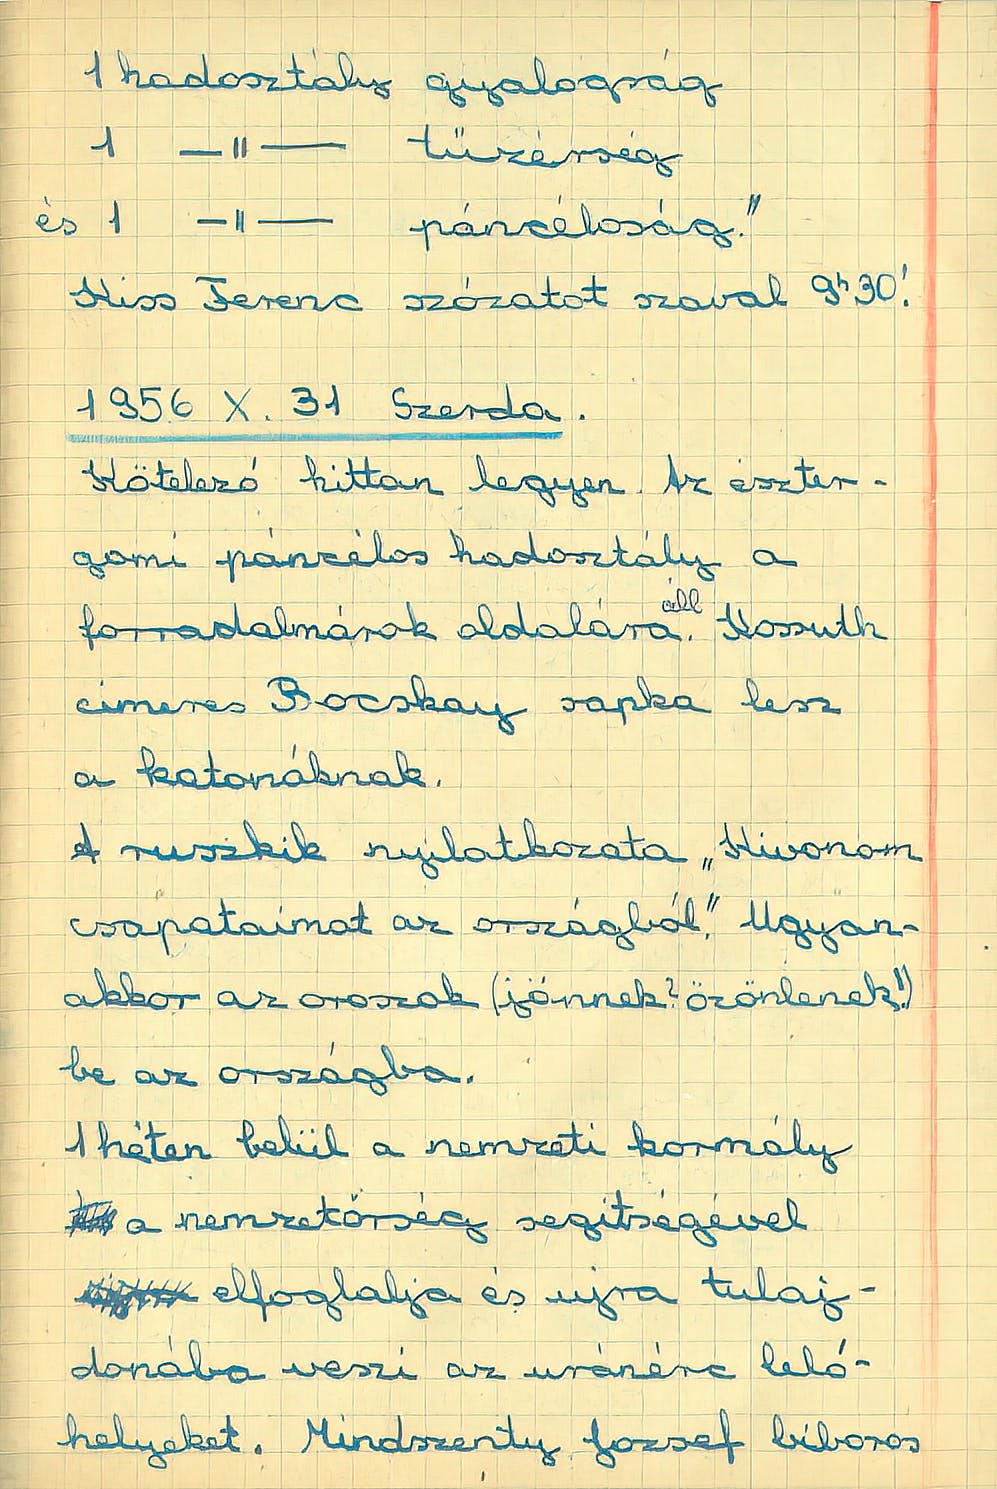 1 hadosztály gyalogság
1 —"— tüzérség
és 1 —"— páncélosság."
Kiss Ferenc szózatot szaval 9h 30!
1956 X. 31 Szerda.
Kötelező hittan legyen. Az eszter-
gomi páncélos hadosztály a
forradalmárok oldalára áll. Kossuth
cimeres Bocskay sapka lesz
a katonáknak.
A ruszkik nyilatkozata „Kivonom
csapataimat az országból." Ugyan-
akkor az oroszok (jönnek? özönlenek!)
be az országba.
1 héten belül a nemzeti kormály
a nemzetőrség segitségével
elfoglalja és ujra tulaj-
donába veszi az uránérc lelő-
helyeket. Mindszenty József biboros